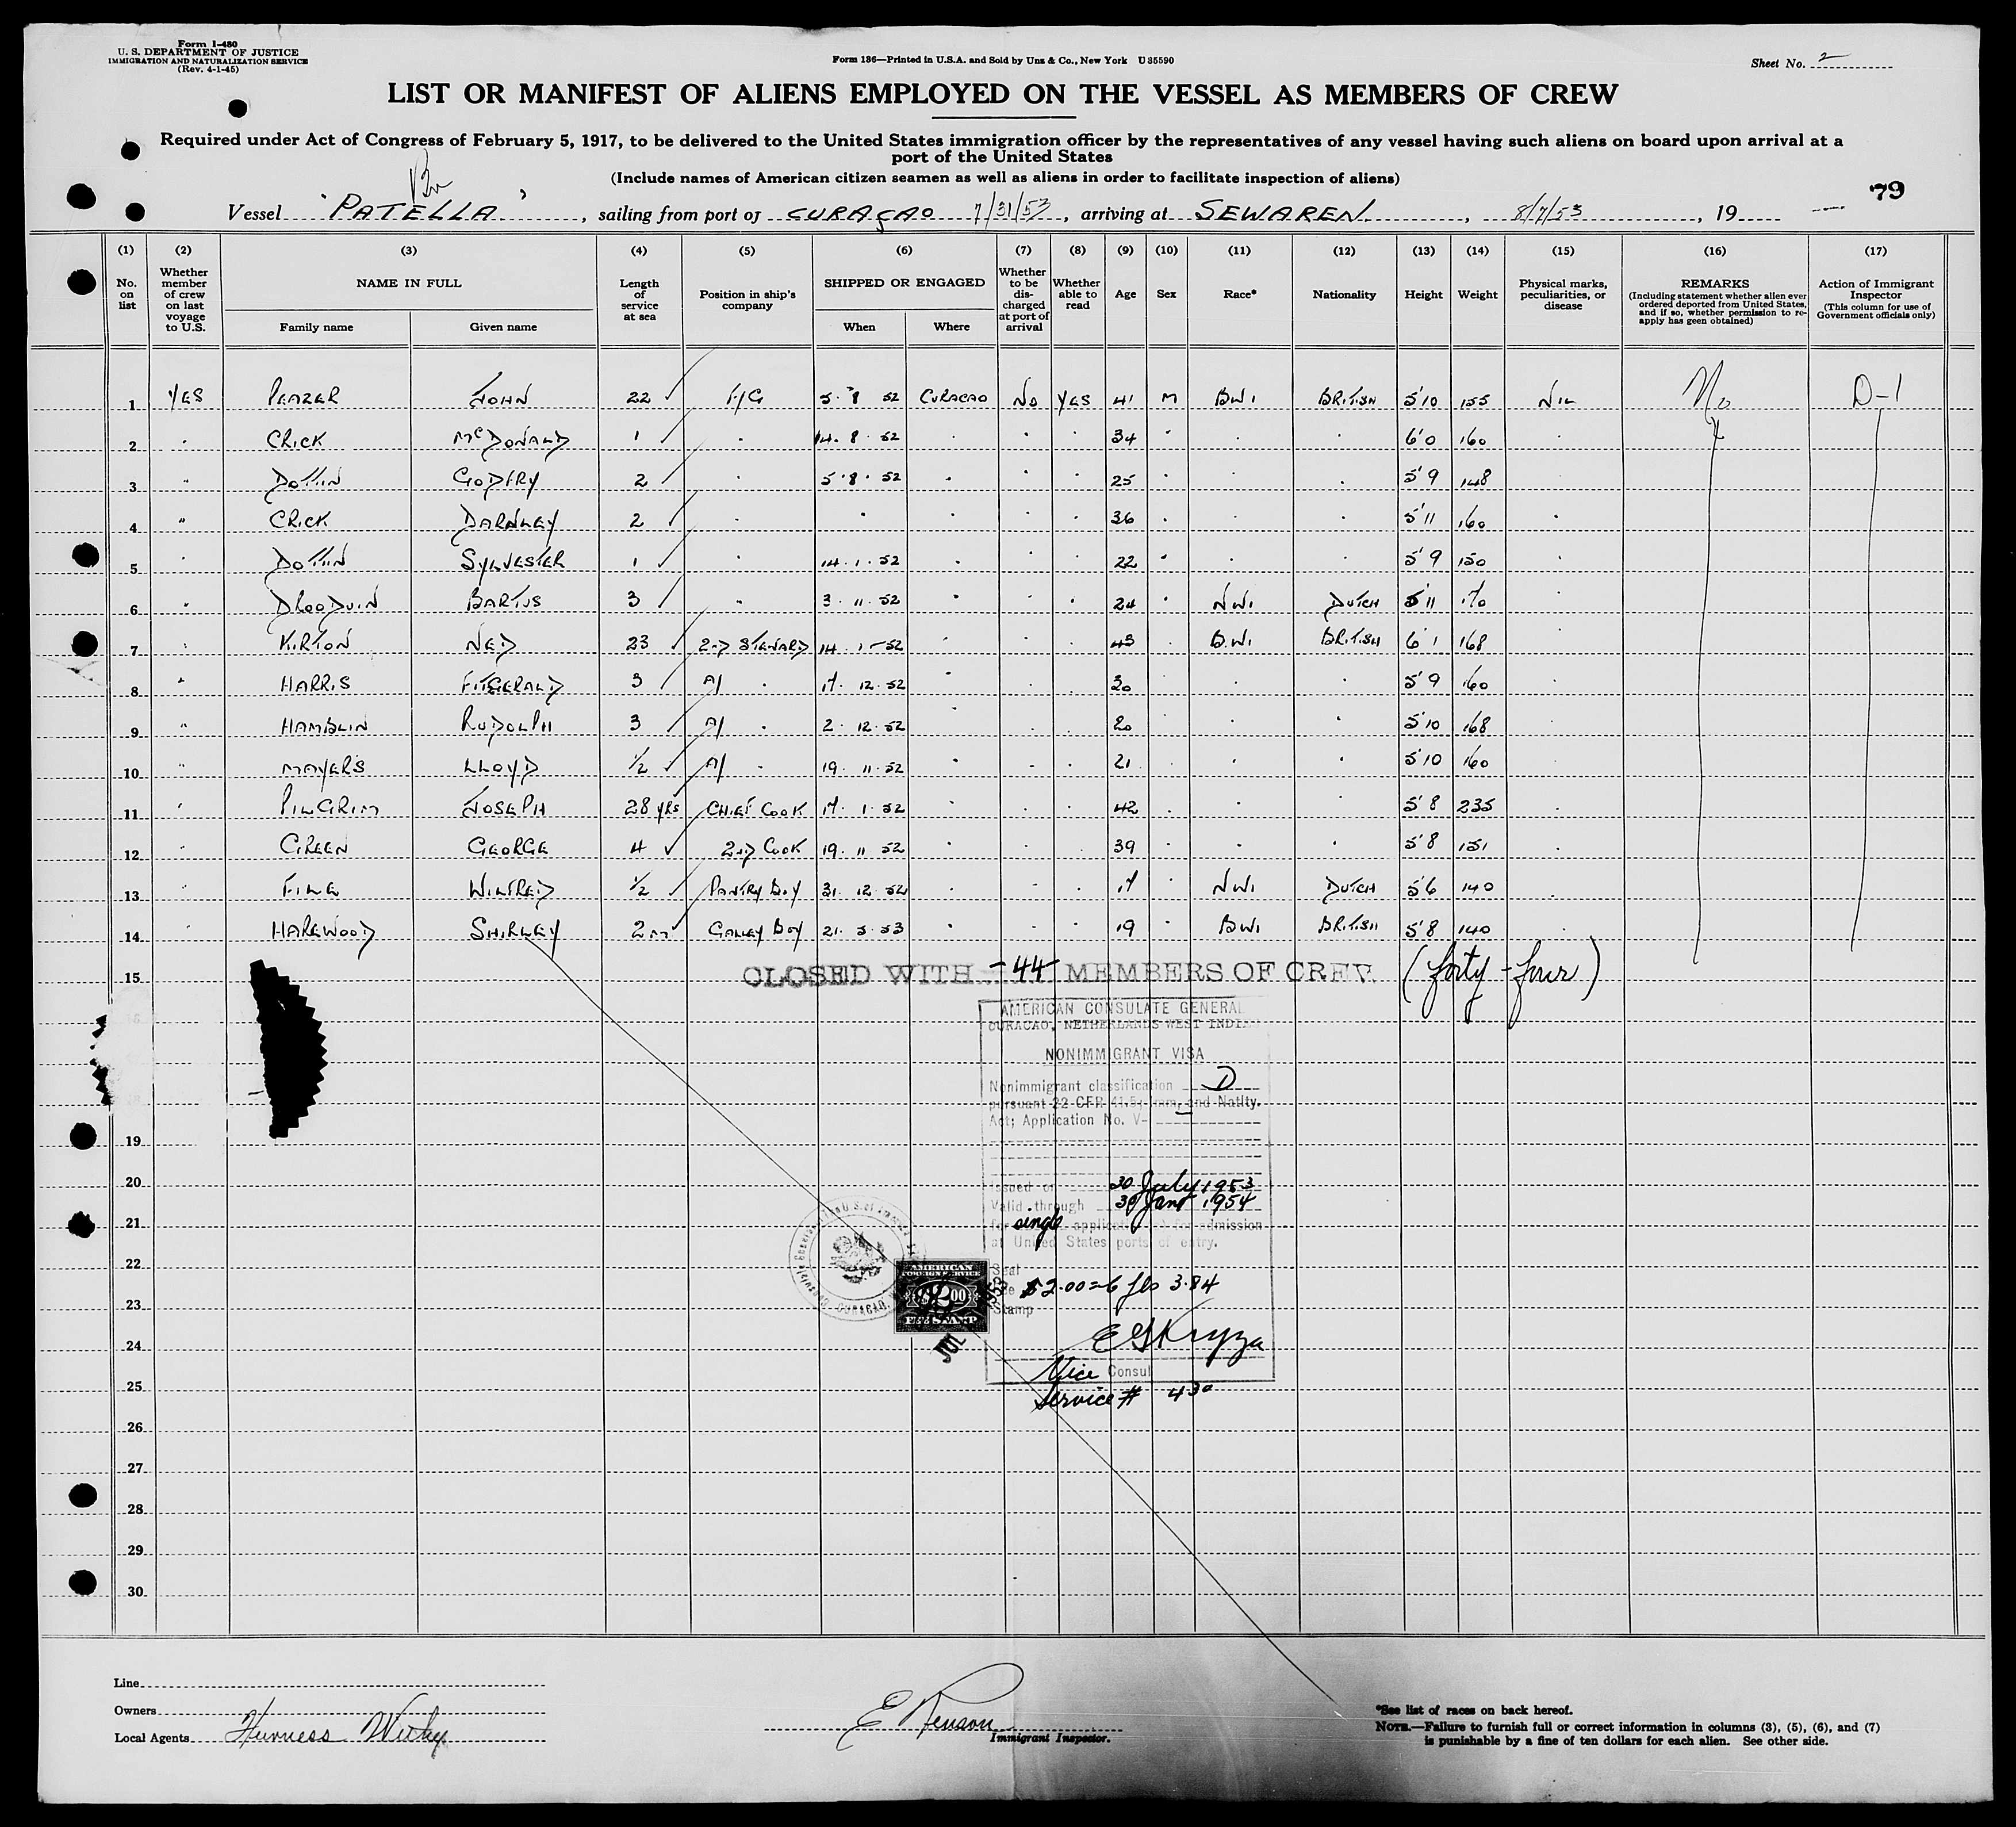 Form I-480
U. S. DEPARTMENT OF JUSTICE
IMMIGRATION AND NATURALIZATION SERVICE
(Rev. 4-1-45)
Form 136—Printed in U.S.A. and Sold by Unz & Co., New York U 35590
Sheet No. 2
LIST OR MANIFEST OF ALIENS EMPLOYED ON THE VESSEL AS MEMBERS OF CREW
Required under Act of Congress of February 5, 1917, to be delivered to the United States immigration officer by the representatives of any vessel having such aliens on board upon arrival at a
port of the United States
(Include names of American citizen seamen as well as aliens in order to facilitate inspection of aliens)
79
Vessel "PATELLA", sailing from port of CURAÇAO 7/31/53, arriving at SEWAREN, 8/7/53, 19
(1) (2) (3) (4) (5) (6) (7) (8) (9) (10) (11) (12) (13) (14) (15) (16) (17)
No. on list
Whether member of crew on last voyage to U.S.
NAME IN FULL
Family name
Given name
Length of service at sea
Position in ship's company
SHIPPED OR ENGAGED
When
Where
Whether to be discharged at port of arrival
Whether able to read
Age
Sex
Race*
Nationality
Height
Weight
Physical marks, peculiarities, or disease
REMARKS
(Including statement whether alien ever ordered deported from United States, and if so, whether permission to re-apply has geen obtained)
Action of Immigrant Inspector
(This column for use of Government officials only)
1 YES JOHN 22 5 8 52 CURACAO NO YES 41 M BWI BRITISH 5'10 155 NIL No D-1
2 " CRICK McDONALD 1 " 14. 8. 52 " " " 34 " " " 6'0 160 "
3 " DOTTIN GODFRY 2 " 5. 8. 52 " " " 25 " " " 5'9 148 "
4 " CRICK DARNLEY 2 " " " " " 36 " " " 5'11 160 "
5 " DOTTIN SYLVESTER 1 " 14. 1. 52 " " " 22 " " " 5'9 150 "
6 " BARTUS 3 " 3. 11. 52 " " " 24 " NWI DUTCH 5'11 170 "
7 " KIRTON NED 23 2ND STEWARD 14. 1-52 " " " 43 " B.WI BRITISH 6'1 168 "
8 " HARRIS FITGERALD 3 A/ " 17. 12. 52 " " " 30 " " " 5'9 160 "
9 " HAMBLIN RUDOLPH 3 A/ " 2. 12. 52 " " " 20 " " " 5'10 168 "
10 " MAYERS LLOYD 1/2 A/ " 19. 11. 52 " " " 21 " " " 5'10 160 "
11 " PILGRIM JOSEPH 28 yrs CHIEF COOK 17. 1. 52 " " " 42 " " " 5'8 235 "
12 " GREEN GEORGE 4 2ND COOK 19. 11 52 " " " 39 " " " 5'8 151 "
13 " WILFRED 1/2 PANTRY BOY 31. 12. 52 " " " 17 " NWI DUTCH 5'6 140 "
14 " HAREWOOD SHIRLEY 2m GALLEY BOY 21. 5. 53 " " " 19 " BWI BRITISH 5'8 140 "
15 CLOSED WITH -44- MEMBERS OF CREW (forty-four)
AMERICAN CONSULATE GENERAL
CURACAO, NETHERLANDS WEST INDIES
NONIMMIGRANT VISA
Nonimmigrant classification D
pursuant 22 CFR 41.5; Imm. and Natlty.
Act; Application No. V-
19
20
Issued on 30 July 1953
Valid through 30 Jan 1954
21
for single application(s) for admission
at United States ports of entry.
22
Seal
AMERICAN
FOREIGN SERVICE
$2.00
FEE STAMP
CURACAO
Fee $2.00 = 6 fls 3.84
Stamp
23
JUL
1953
24
Vice Consul
25
Service # 430
26
27
28
29
30
Line
Owners
Local Agents Furness Withy
Immigrant Inspector.
*See list of races on back hereof.
NOTE.—Failure to furnish full or correct information in columns (3), (5), (6), and (7)
is punishable by a fine of ten dollars for each alien. See other side.